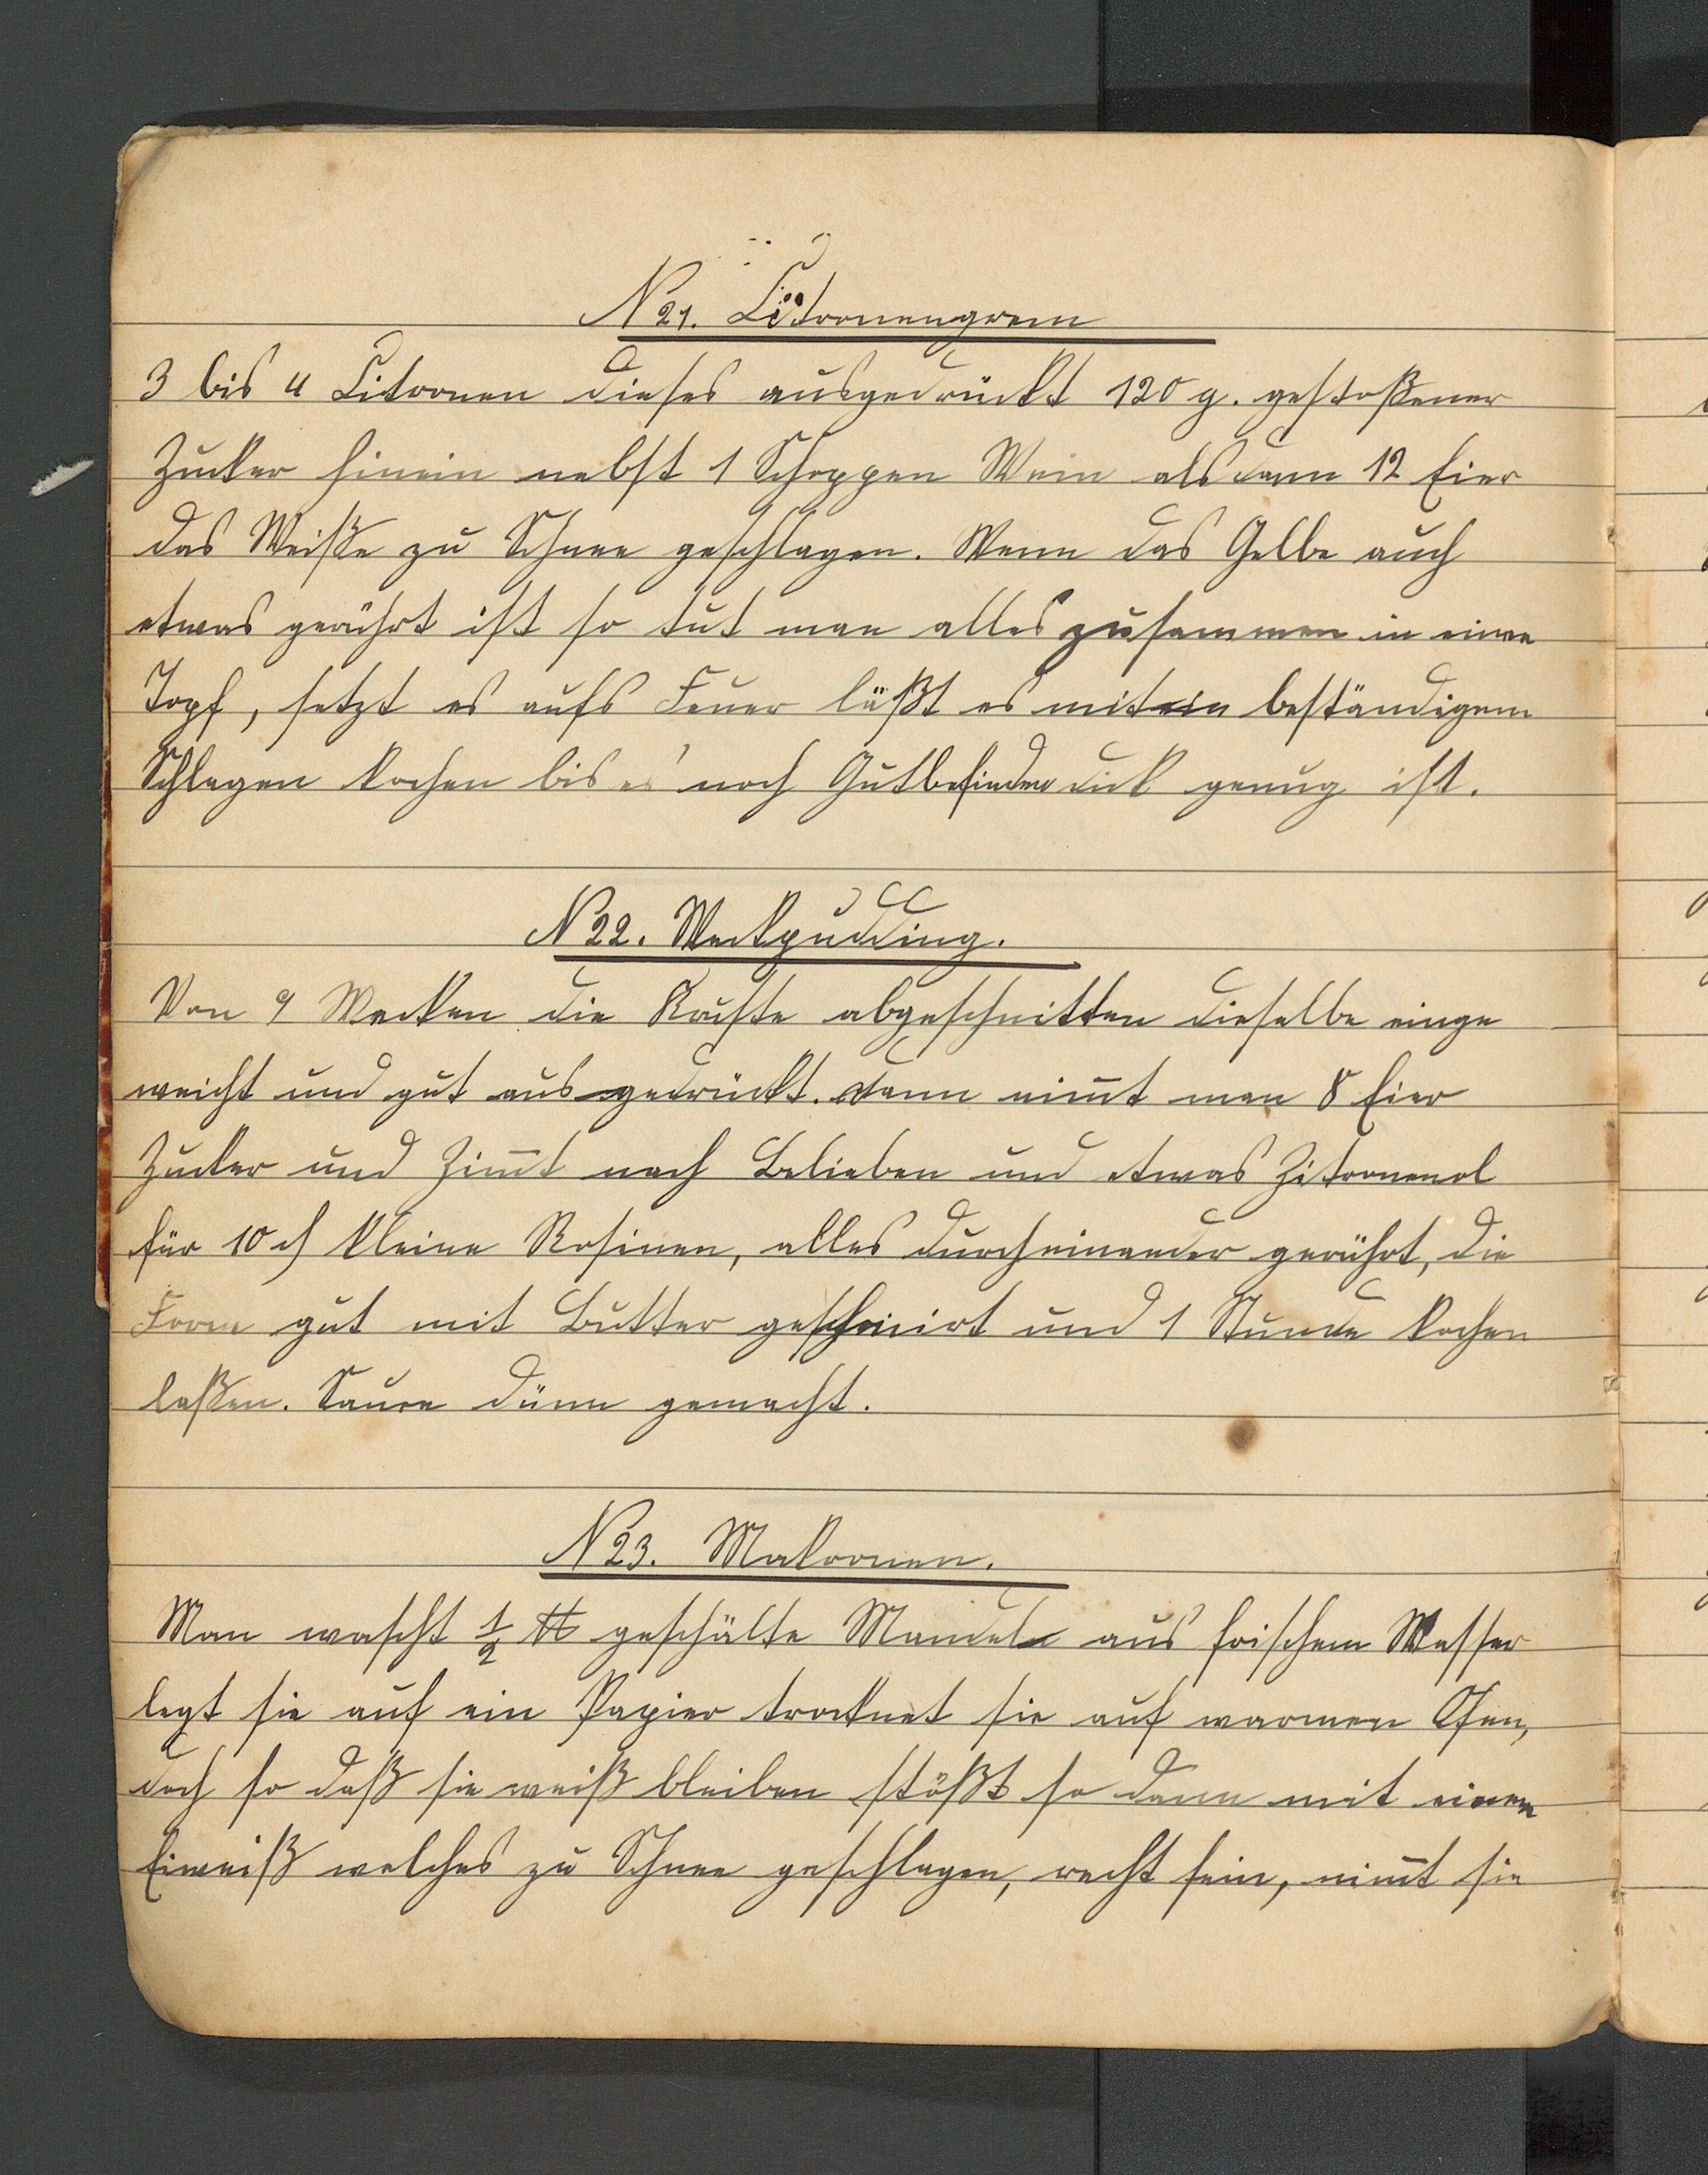 N 21. Citronengrem
3 bis 4 Citronen dieses ausgedrückt 120 g. gestoßener
Zucker hinein nebst 1 Schoppen Wein alsdann 12 Eier
das Weiße zu Schnee geschlagen. Wenn das Gelbe auch
etwas gerührt ist so tut man alles zusammen in eine
Topf, setzt es aufs Feuer läßt es mit beständigem
Schlagen kochen bis es nach Gutbefinden dick genug ist.
N 22. Weckpudding.
Von 9 Wecken die Kruste abgeschnitten dieselbe einge
weicht und gut ausgedrückt. dann nim̅t man 8 Eier
Zucker und Zim̅t nach Belieben und etwas Zitronenol
für 10 ₰ kleine Rosinen, alles durcheinander gerührt, die
Form gut mit Butter geschmirt und 1 Stunde kochen
laßen. Sauce dünn gemacht.
N 23. Makronen.
Man wascht ½ ℔ geschälte Mandeln aus frischem Wasser
legt sie auf ein Papier trocknet sie auf warmen Ofen,
doch so daß sie weiß bleiben stößt so dann mit einem
Eiweiß welches zu Schnee geschlagen, recht fein, nim̅t sie